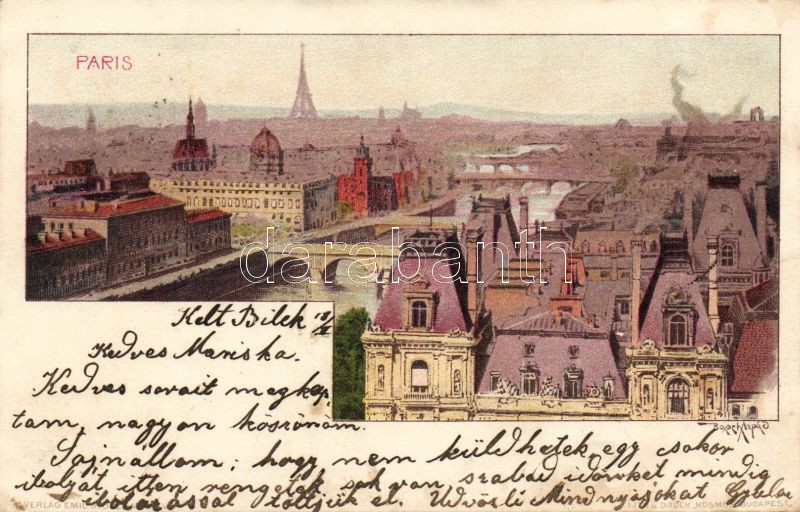 PARIS
darabanth
Kelt Bilek 18/
Kedves Mariska.
Kedves sorait megkap
tam, nagyon köszönöm.
Sajnállom, hogy nem küldhetek egy csokor
ibolyát, itten rengeteg sok van, szabad időnket mindig
ibolázással töltjük el. Üdvözli Mindnyájokat Gyula
Basch Árpád
VERLAG EMIL
DRUCK, KOSMOS BUDAPEST.